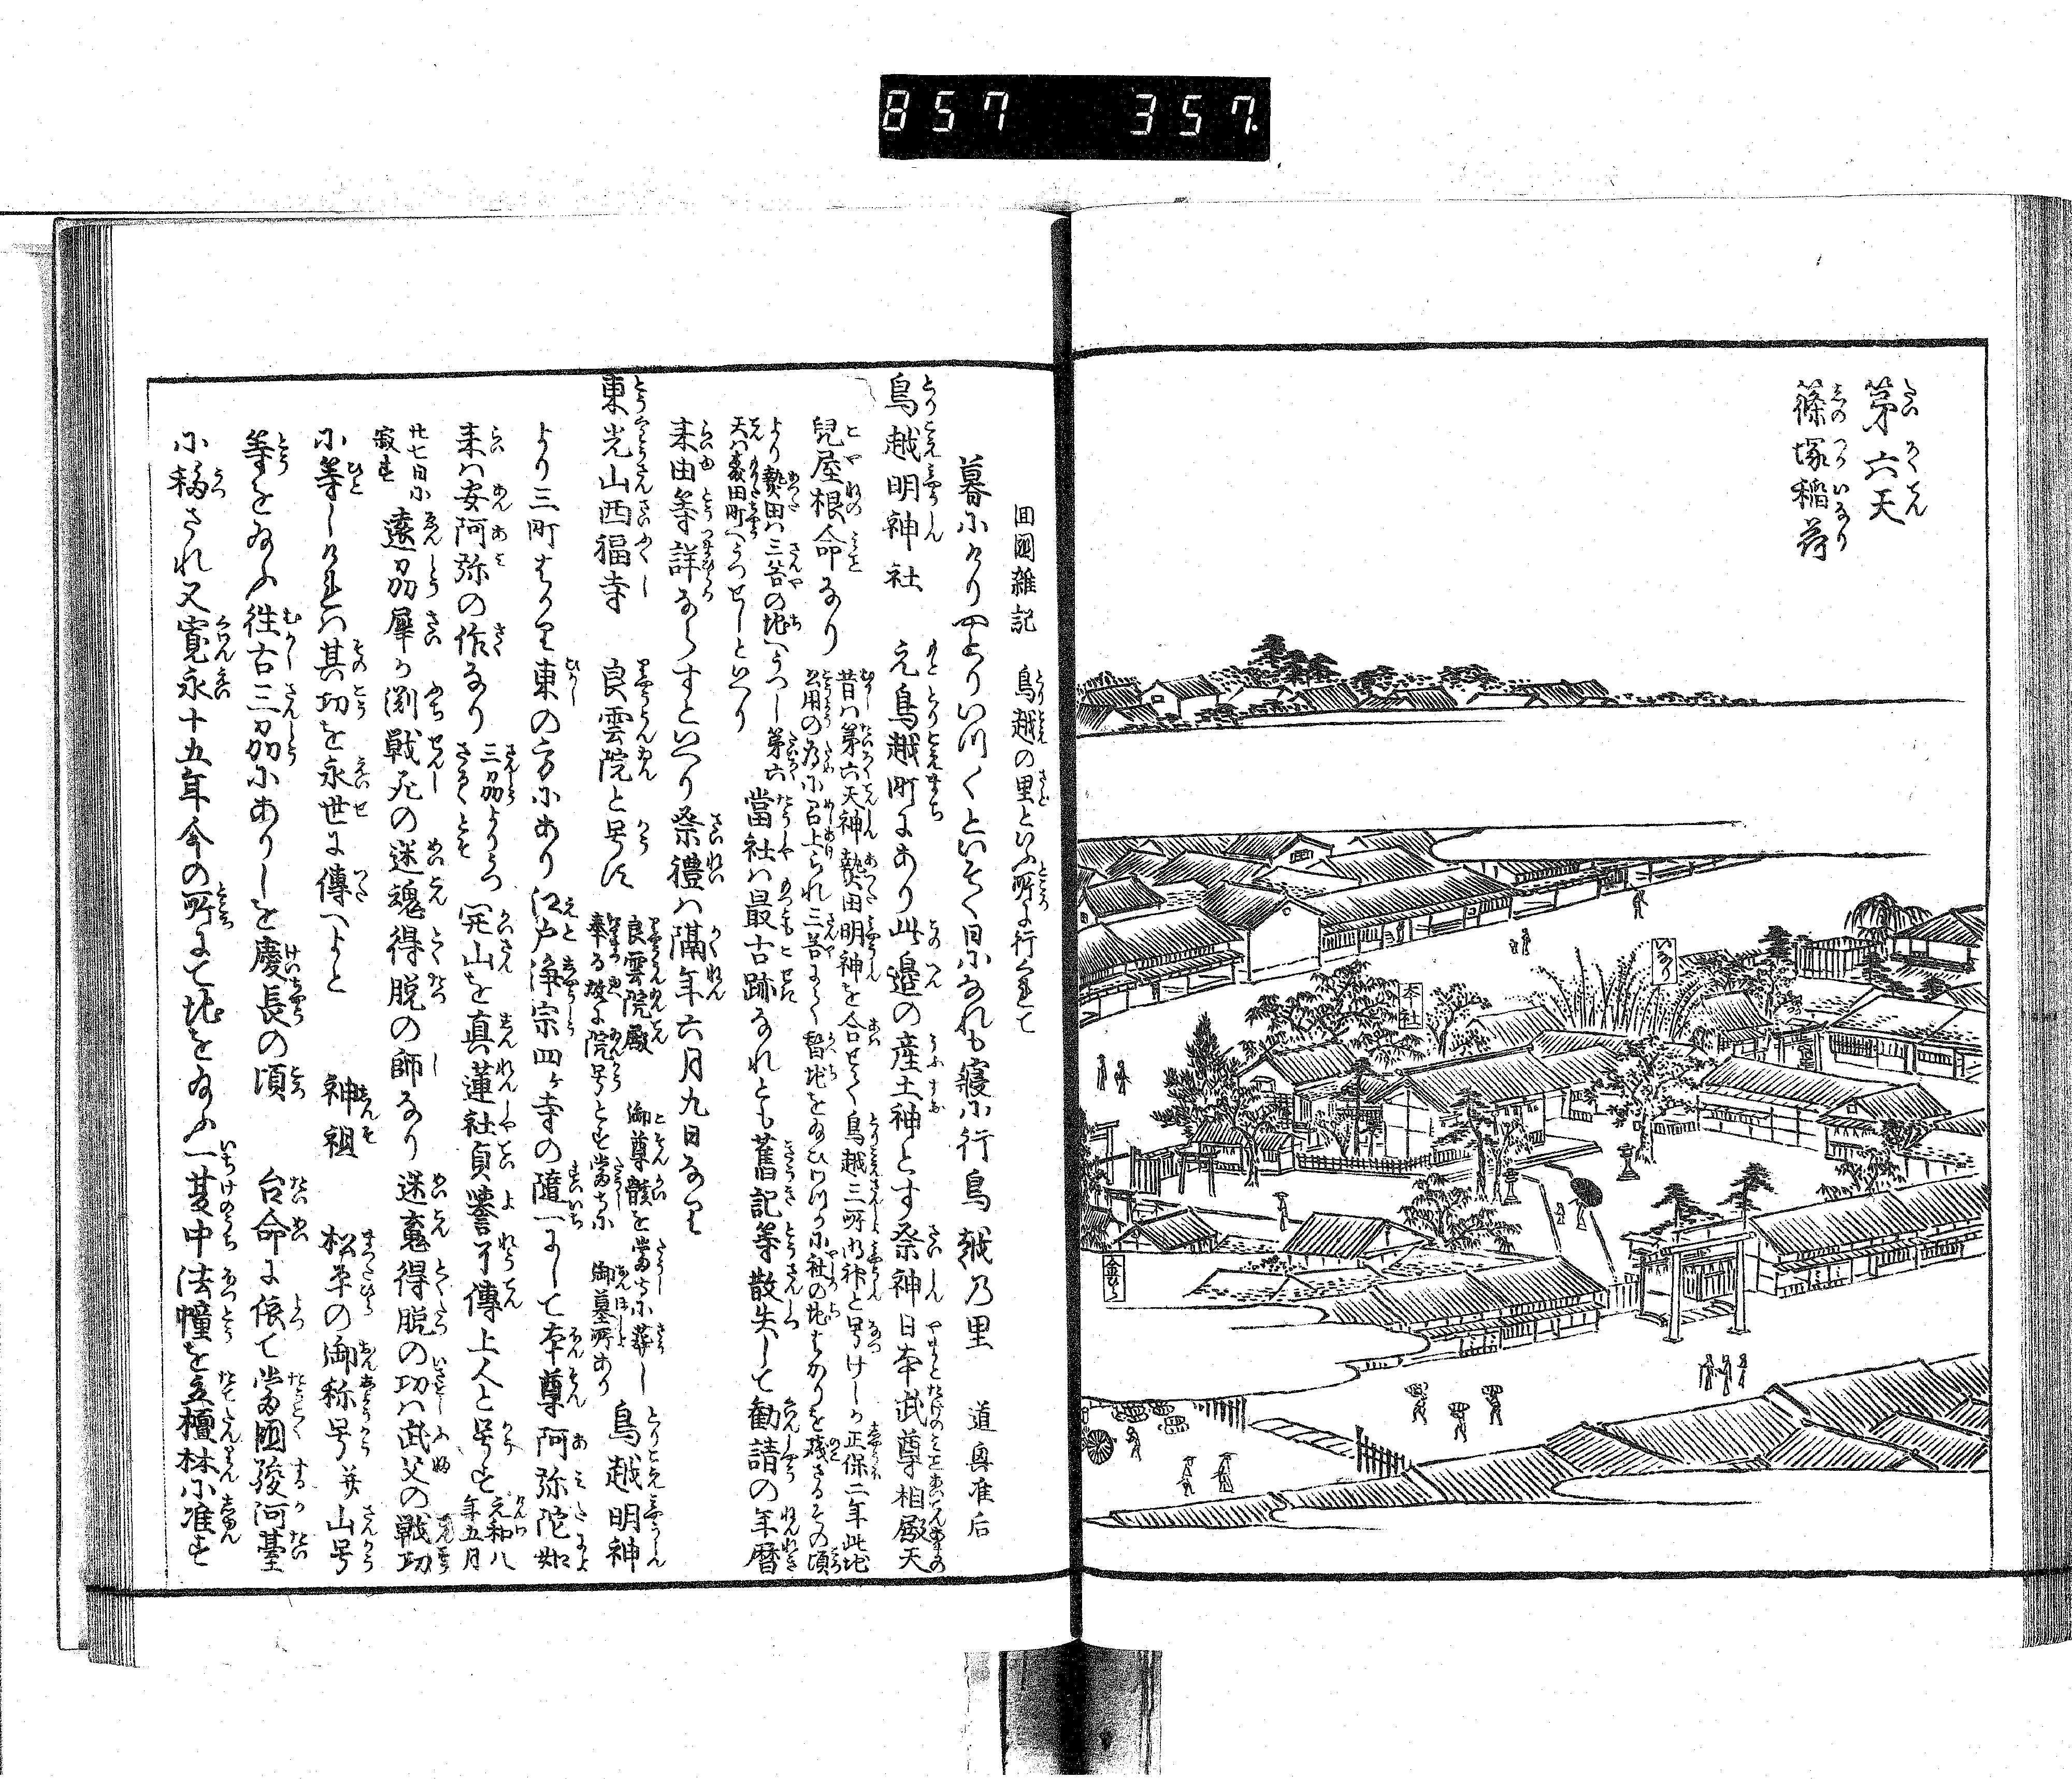 857 357.
第六天
篠塚稲荷
いなり
本社
金ひら
回國雑記 鳥越の里といふ所に行くれて
暮にけりやとりいつくといそく日になれも寝に行鳥越乃里 道興准后
鳥越明神社 元鳥越町にあり此邉の産土神とす祭神日本武尊相殿天
兒屋根命なり
昔は第六天神𤍠田明神を合せて鳥越三所明神と号けしか正保二年此地
公用の為に召上られ三谷にて替地をたまひわつか小社の地はかりを残さるその頃
より𤍠田は三谷の地へうつし第六
天は森田町へうつせしといへり
當社は最古跡なれとも舊記等散失して勧請の年暦
来由等詳ならすといへり祭禮は隔年六月九日なり
東光山西福寺 良雲院と号す
良雲院殿 御尊骸を當寺に葬し
奉る故に院号とす當寺に 御墓所あり
鳥越明神
より三町はかり東の方にあり江戸浄宗四ケ寺の随一にして本尊阿弥陀如
来は安阿弥の作なり
三刕よりうつ
さるゝとそ
開山を真蓮社貞譽了傳上人と号す
元和八
年五月
廿七日に
寂す
遠刕犀か渕戦死の迷魂得脱の師なり 迷䰟得脱の功は武父の戦功
に等しけれは其功を永世に傳へよと 神祖 松平の御称号并山号
等をたまふ往古三刕にありしを慶長の頃 台命に依て當國駿河臺
に移され又寛永十五年今の所にて地をたまふ一夏中法幢を立檀林に准す